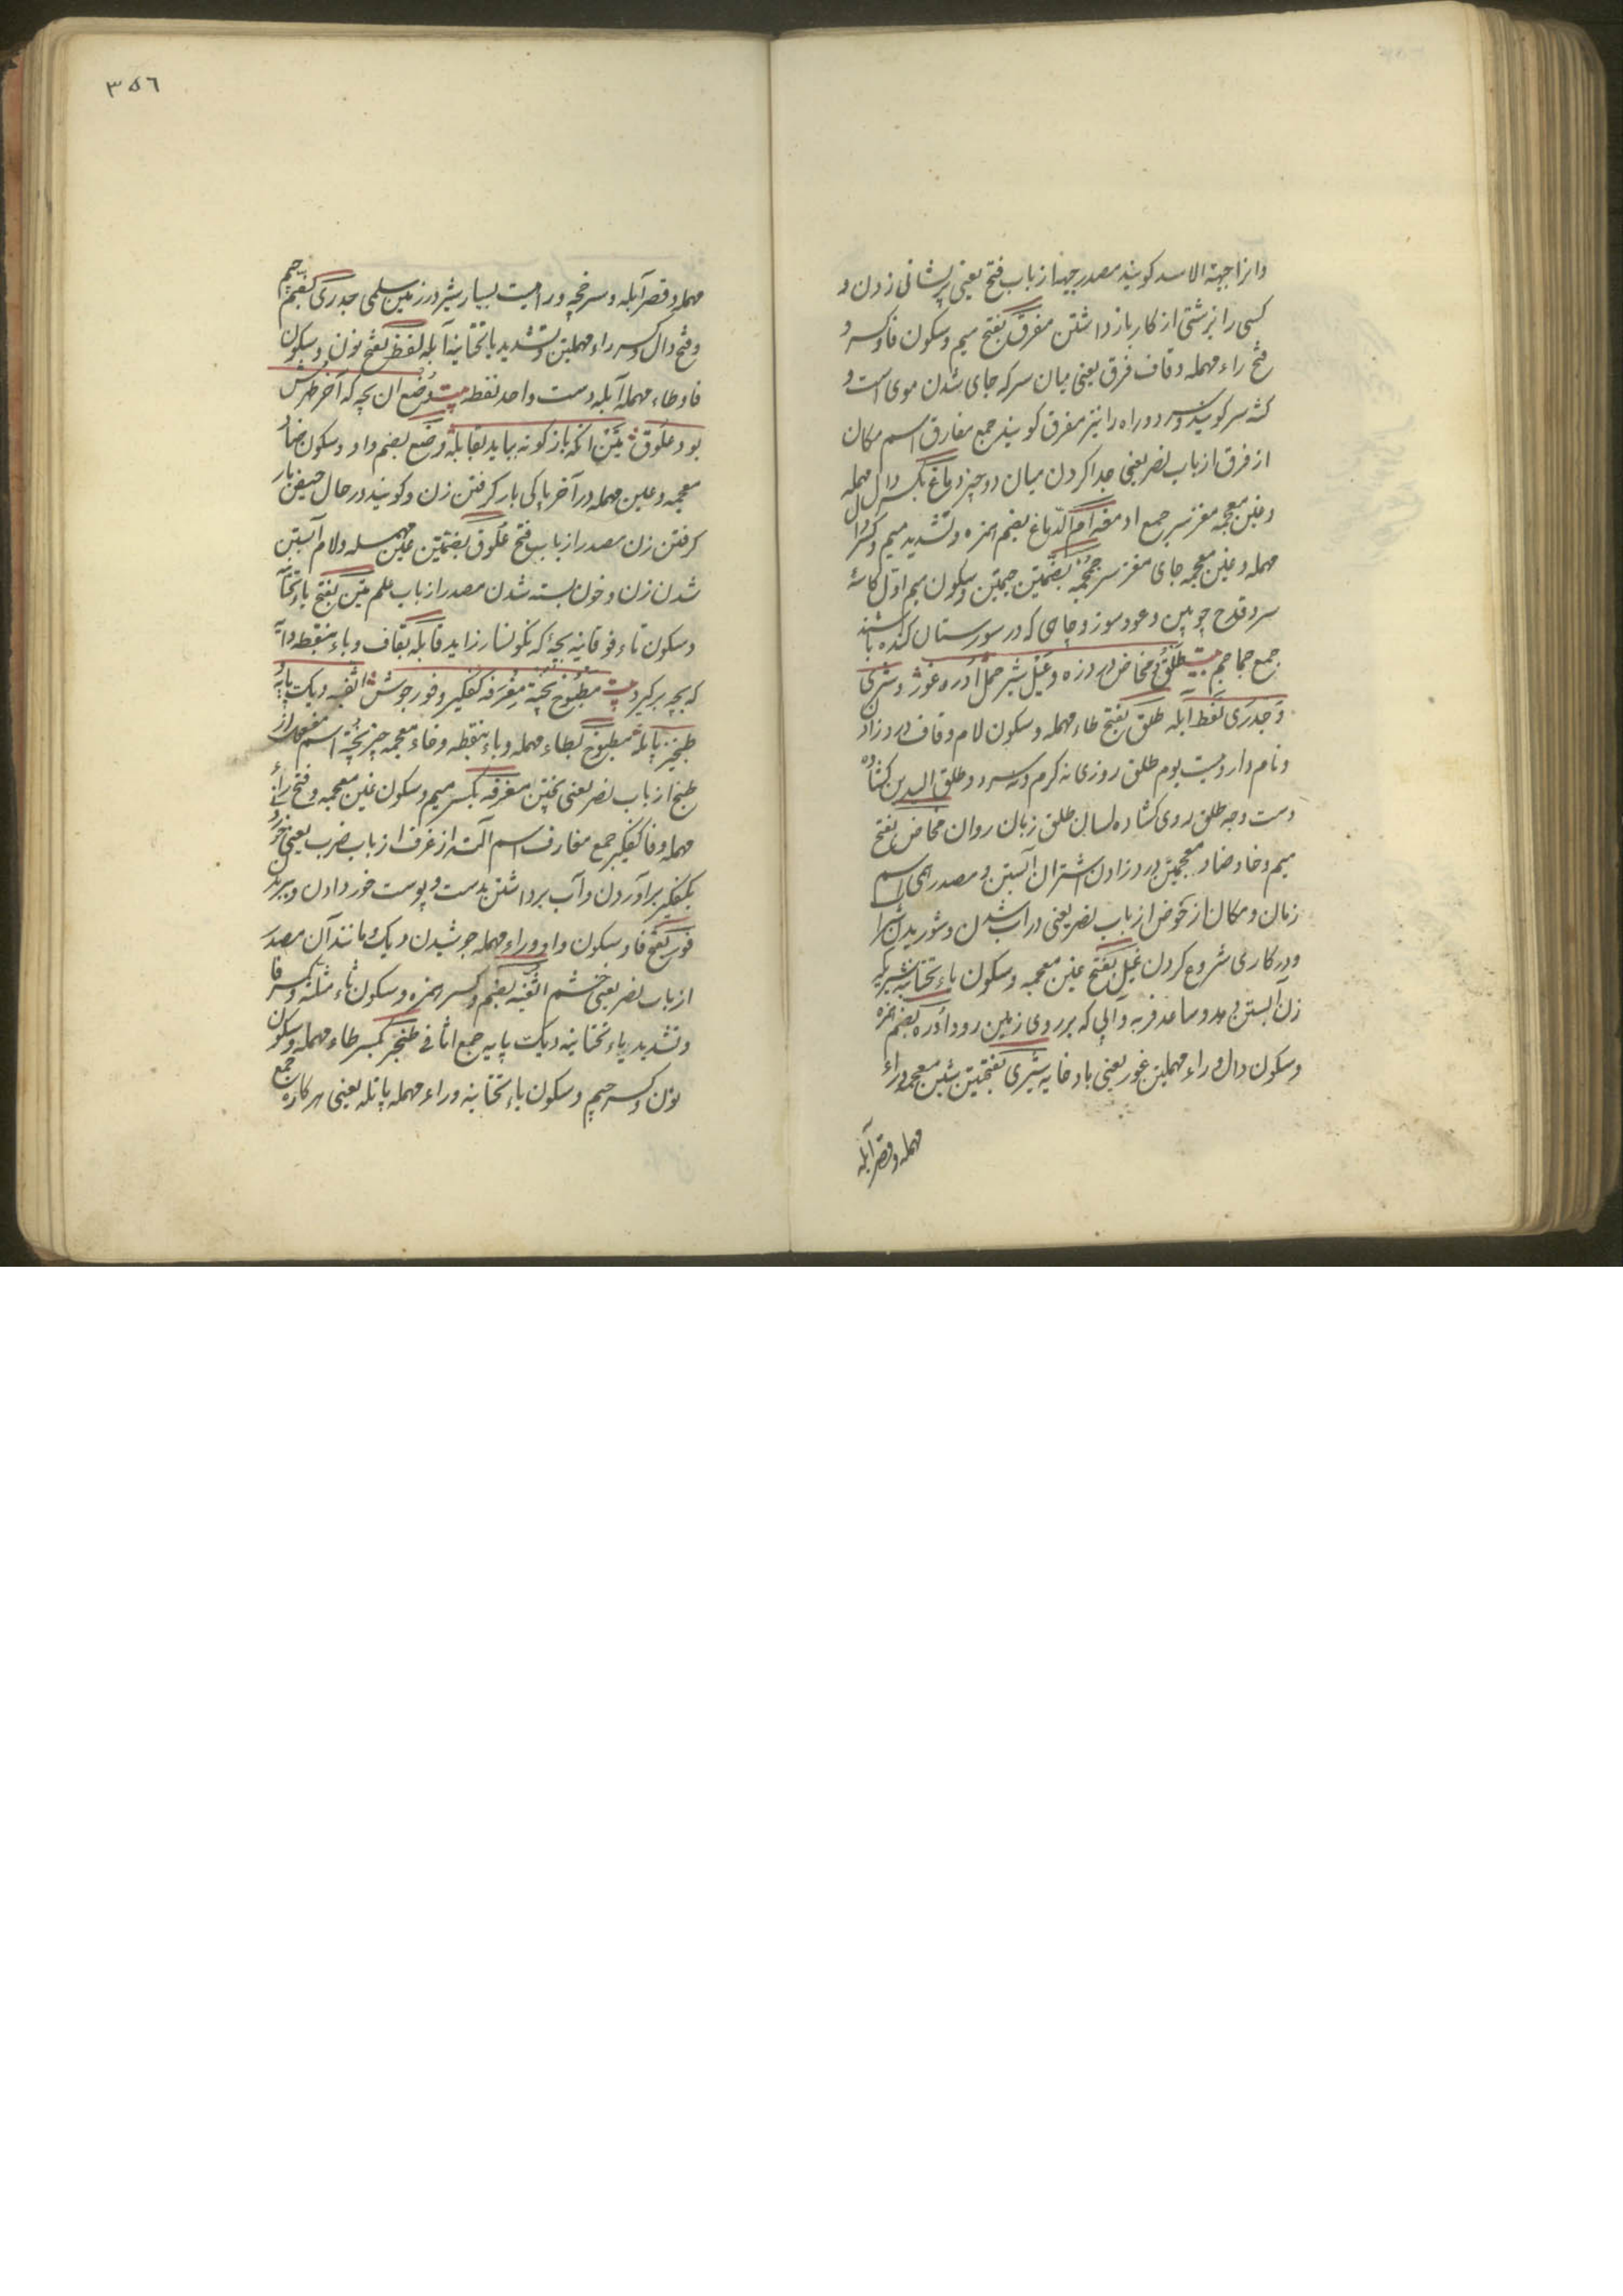 وانرا جبهة الاسد کویند مصدر جبها از باب فتح یعنی پیشانی زدن و
کسی را بزشتی از کار باز داشتن مفرق بفتح میم و سکون فا و کسر و
فتح راء مهمله و قاف فرق یعنی میان سر که جای شدن موی است و
سر کویند دوراه را نیز مفرق کویند جمع مفارق اسم مکان
از فرق از باب نصر یعنی جدا کردن میان دو چیز دماغ بکسر دال مهمله
و غین معجمه مغز سر جمع ادمغه ام الدماغ بضم همزه و تشدید میم و کسر دال
مهمله و غین معجمه جای مغز سر جمجمه بضمتین جیمین و سکون میم اول کاسهٔ
سر و قدح چوبین و عود سوز و چاهی که در سورستان کنده باشند
جمع جماجم بیت طلق و مخاض درد زه و غیل شیر حمل ادره غور و شری
و جدری نفط آبله طلق بفتح طاء مهمله و سکون لام و قاف درد زادن
و نام داروییست یوم طلق روزی نه کرم و نه سرد و طلق الیدین کشاده
دست وجه طلق روی کشاده لسان طلق زبان روان مخاض بفتح
میم و خا و ضاد معجمتین درد زادن و اشتران آبستن و مصدر میمی اسم
زمان و مکان از خوض از باب نصر یعنی در آب شدن و شوریدن شراب
و در کاری شروع کردن غیل بفتح غین معجمه و سکون یاء تحتانیه شیریکه
زن آبستن بدهد و ساعد فربه و آبی که بر روی زمین رود ادره بضم همزه
و سکون دال و راء مهملتین غور یعنی باد خایه شری بفتحتین شین معجمه و راء
مهمله و قصر آبله
٣٥٦
مهمله و قصر آبله و سرخچه و راهیست بسیار شیر در زمین سلمی جدری بضم جیم
و فتح دال و کسر راء مهملتین و تشدید یاء تحتانیه آبله نفط بفتح نون و سکون
فا و طاء مهمله آبله دست واحد نفطه بیت وضع آن بچه که آخر طهرش
بود علوق یتن آنکه بازکونه بیاید بقابله وضع بضم واو و سکون ضاد
معجمه و عین مهمله در آخر پاکی بار کرفتن زن و کویند در حال حیض بار
کرفتن زن مصدر از باب فتح علوق بضمتین عین مهمله و لام آبستن
شدن زن و خون بسته شدن مصدر از باب علم یتن بفتح یاء تحتانیه
و سکون تاء فوقانیه بچهٔ که نکونسار زاید قابله بقاف و باء بنقطه دایه
که بچه برکیرد بیت مطبوخ پخته مغرفه کفکیر و فور جوش اثفیه دیک پایه و
طنجیر پاتله مطبوخ بطاء مهمله و باء بنقطه و خاء معجمه چیز پخته اسم مفعول از
طبخ از باب نصر یعنی پختن مغرفه بکسر میم و سکون غین معجمه و فتح راء
مهمله و فا کفکیر جمع مغارف اسم آلت از غرف از باب ضرب یعنی خورد
بکفکیر برآوردن و آب برداشتن بدست و پوست خور دادن و بریدن
فور بفتح فا و سکون واو و راء مهمله جوشیدن دیک و مانند آن مصدر
از باب نصر یعنی خشم اثفیه بضم و کسر همزه و سکون ثاء مثلثه و کسر فا
و تشدید یاء تحتانیه دیک پایه جمع اثافی طنجیر بکسر طاء مهمله و سکون
نون و کسر جیم و سکون یاء تحتانیه و راء مهمله پاتله یعنی هرکاره جمع